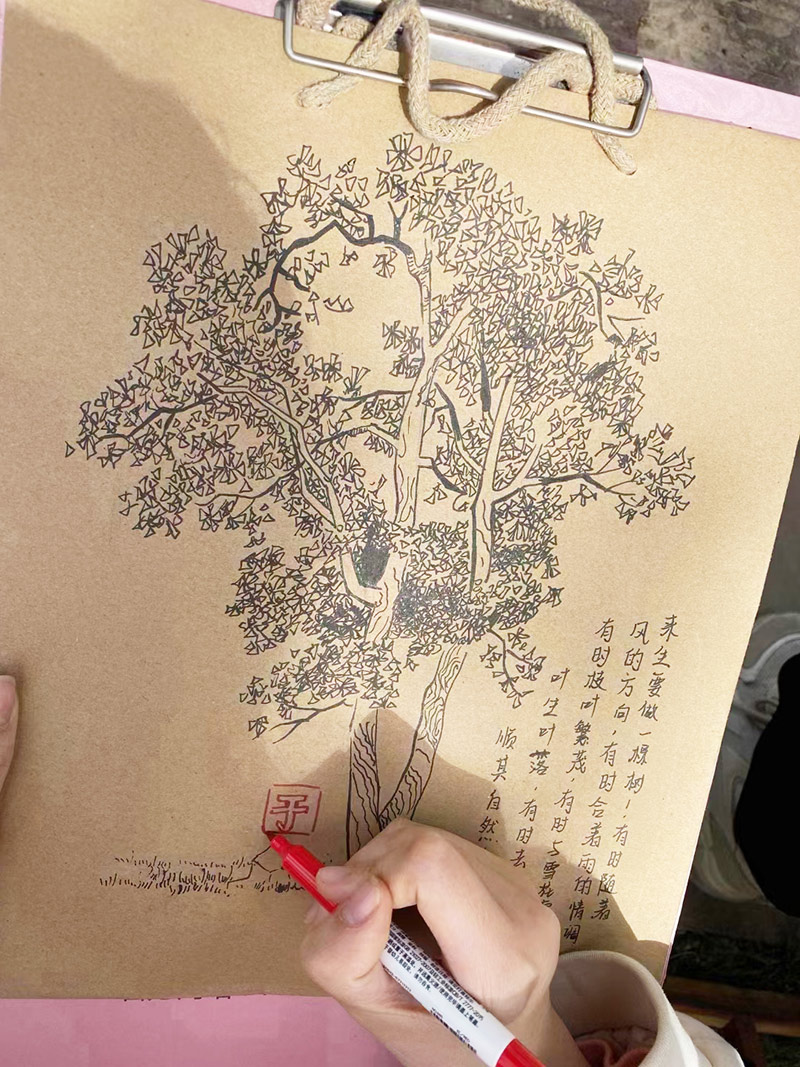 来生要做一棵树！有时随着
风的方向，有时合着雨的情调
有时枝叶繁茂，有时与雪
叶生叶落，有时去
顺其自然
于